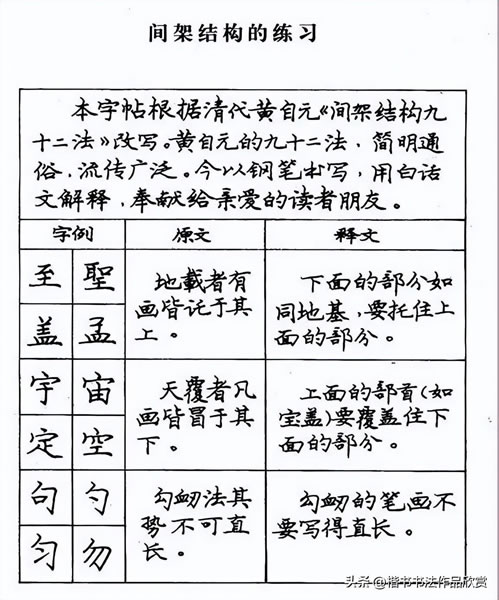 间架结构的练习
本字帖根据清代黄自元《间架结构九
十二法》改写。黄自元的九十二法，简明通
俗，流传广泛。今以钢笔书写，用白话
文解释，奉献给亲爱的读者朋友。
字例 原文 释文
至 聖
盖 孟
地載者有
画皆讬于其
上。
下面的部分如
同地基，要托住上
面的部分。
宇 宙
定 空
天覆者凡
画皆冒于其
下。
上面的部首（如
宝盖）要覆盖住下
面的部分。
句 勺
匀 勿
勾衂法其
势不可直
长。
勾衂的笔画不
要写得直长。
头条 @楷书书法作品欣赏